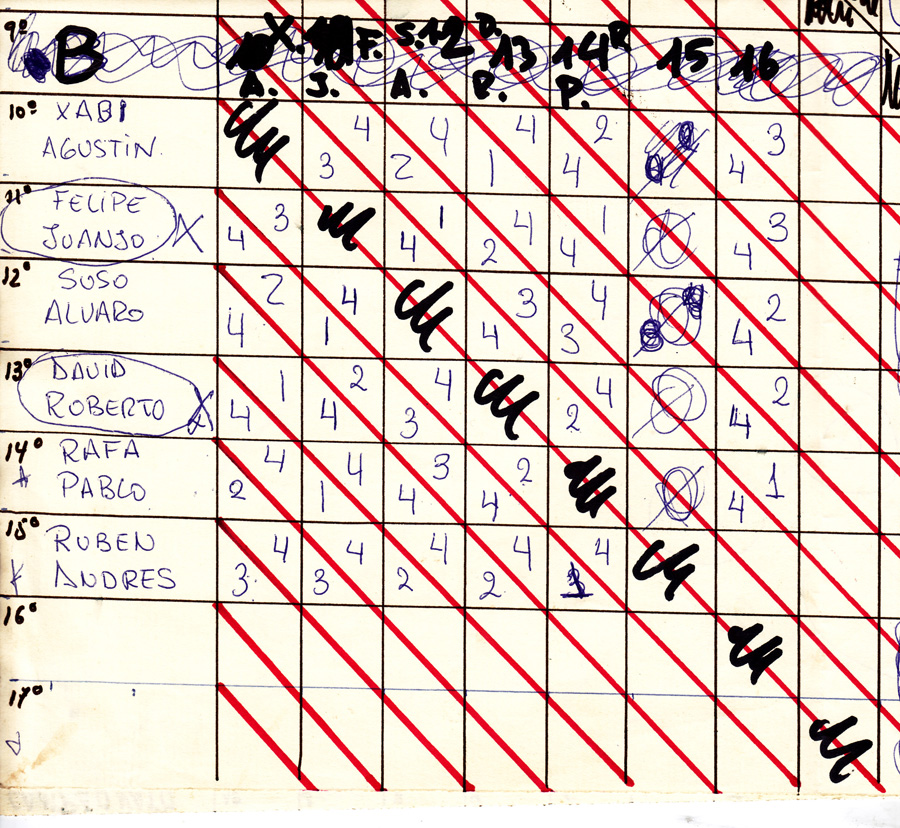 9º
B X. F. S.12 D. 13 14 R 15 16
A. J. A. R. P.
10º XABI 4 4 4 2 3
AGUSTIN. 3 2 1 4 4
11º FELIPE 3 1 4 1 3
JUANJO X 4 4 2 4 4
12º SUSO 2 4 3 4 2
ALVARO 4 1 4 3 4
13º DAVID 1 2 4 4 2
ROBERTO X 4 4 3 2 4
14º RAFA 4 4 3 2 1
PABLO 2 1 4 4 4
15º RUBEN 4 4 4 4 4
ANDRES 3 3 2 2
16º
17º